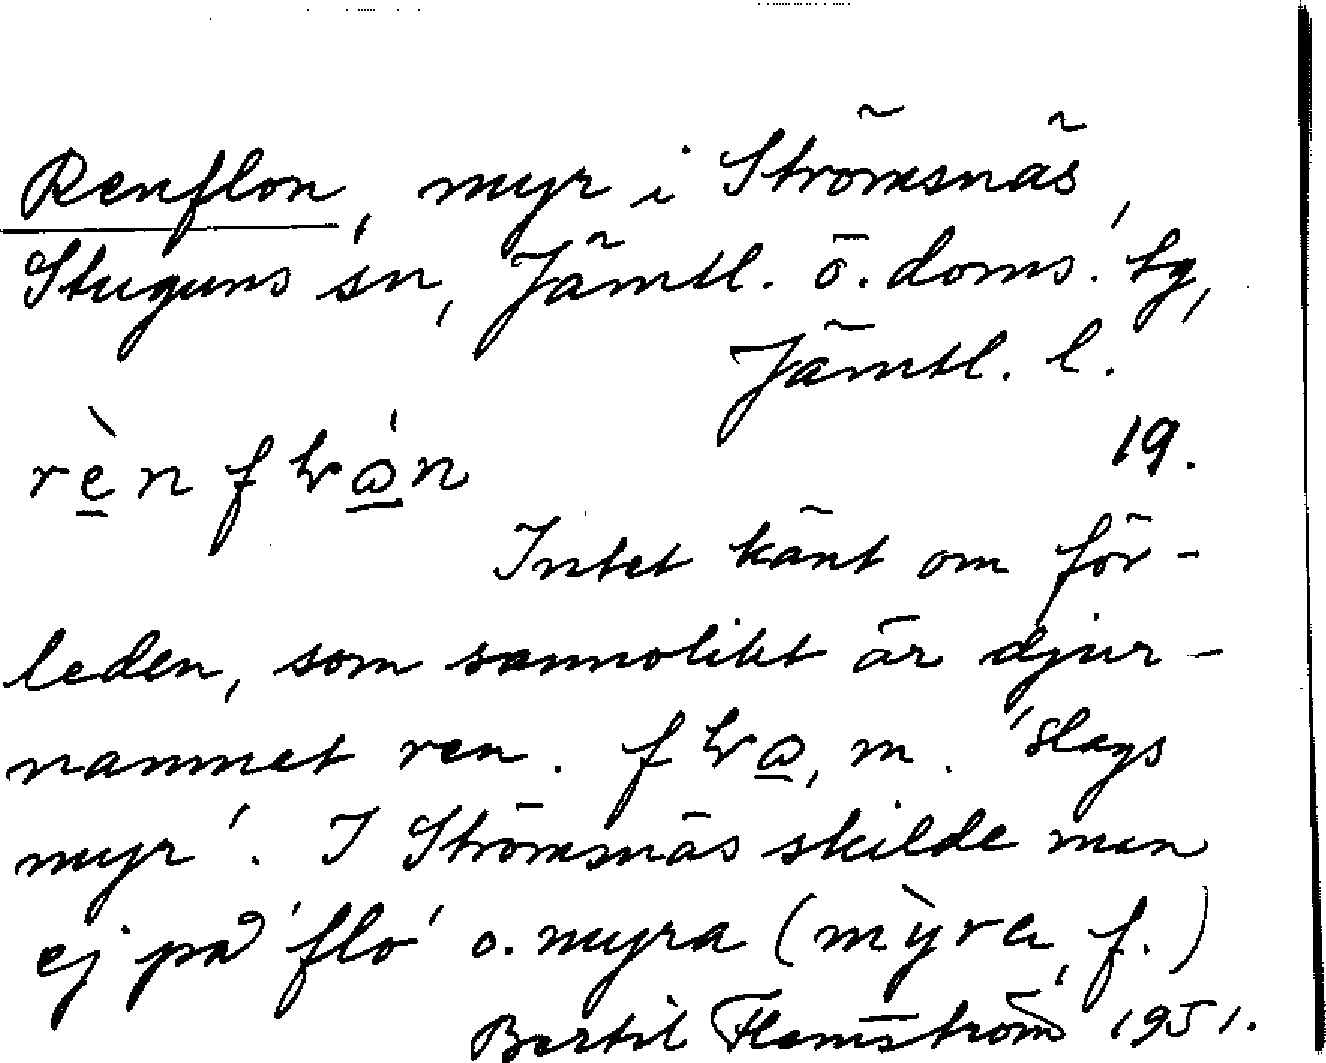 Renflon, myr i Strömsnäs,
Stuguns sn, Jämtl. ö. doms. tg,
Jämtl. l.
19.
Intet känt om för-
leden, som sannolikt är djur-
namnet ren. m. 'slags
myr'. I Strömsnäs skilde man
ej på 'flo' o. myra (mỳra, f.)
Bertil Flemström 1951.